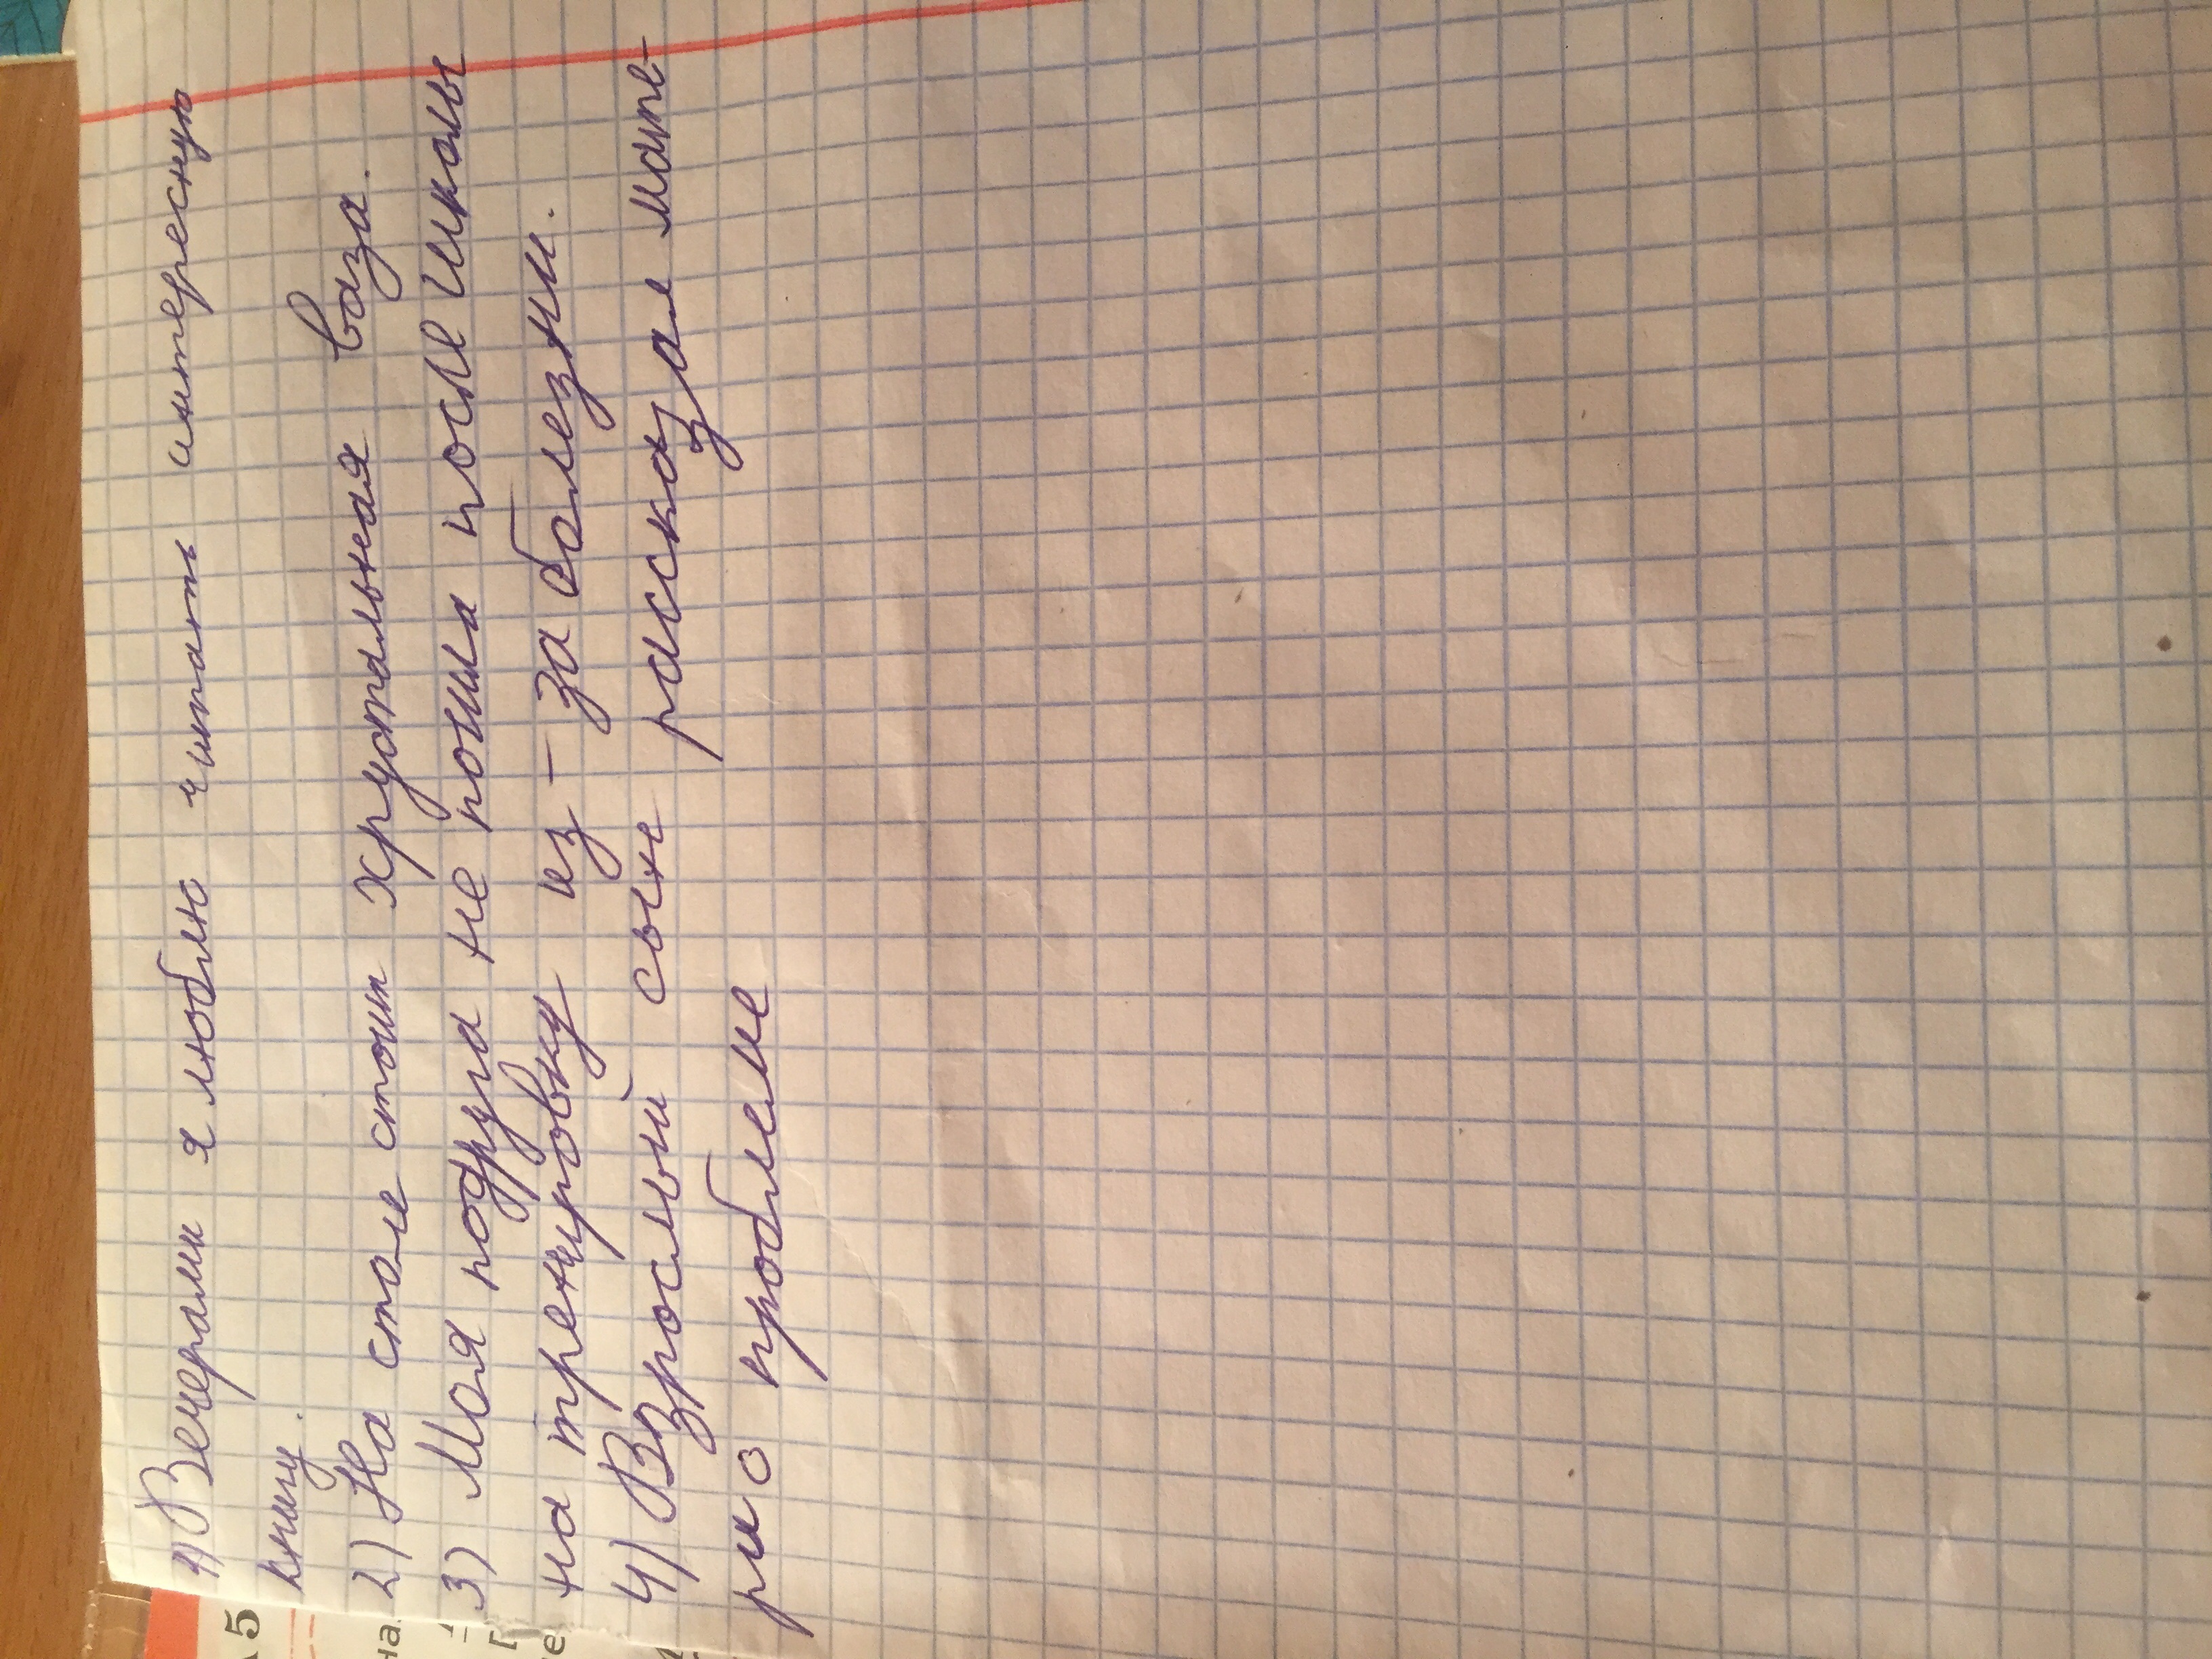 1) Вечерами я люблю читать интересную
книгу.
2) На столе стоит хрустальная ваза.
3) Моя подруга не пошла после школы
на тренировку из-за болезни.
4) Взрослый сын рассказал мате-
ри о проблеме